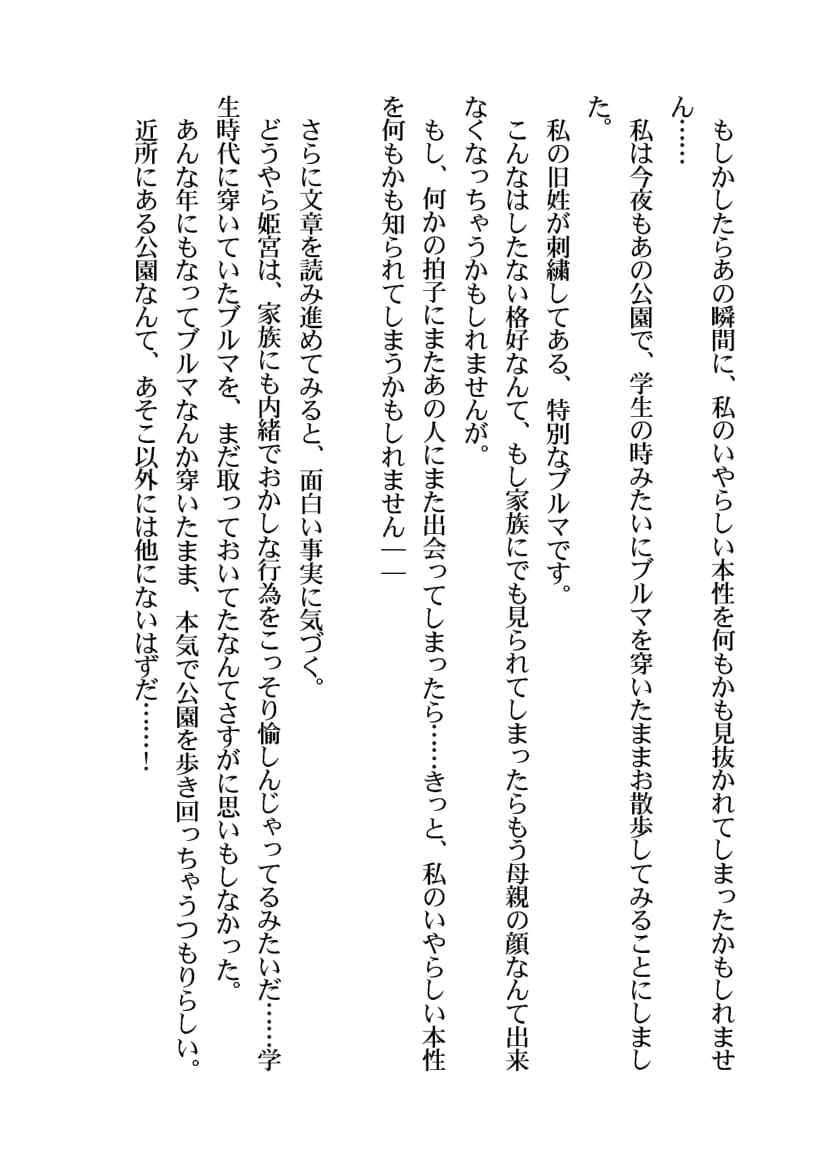 もしかしたらあの瞬間に、私のいやらしい本性を何もかも見抜かれてしまったかもしれませ
ん……
私は今夜もあの公園で、学生の時みたいにブルマを穿いたままお散歩してみることにしまし
た。
私の旧姓が刺繍してある、特別なブルマです。
こんなはしたない格好なんて、もし家族にでも見られてしまったらもう母親の顔なんて出来
なくなっちゃうかもしれませんが。
もし、何かの拍子にまたあの人にまた出会ってしまったら……きっと、私のいやらしい本性
を何もかも知られてしまうかもしれません――
さらに文章を読み進めてみると、面白い事実に気づく。
どうやら姫宮は、家族にも内緒でおかしな行為をこっそり愉しんじゃってるみたいだ……学
生時代に穿いていたブルマを、まだ取っておいてたなんてさすがに思いもしなかった。
あんな年にもなってブルマなんか穿いたまま、本気で公園を歩き回っちゃうつもりらしい。
近所にある公園なんて、あそこ以外には他にないはずだ……！